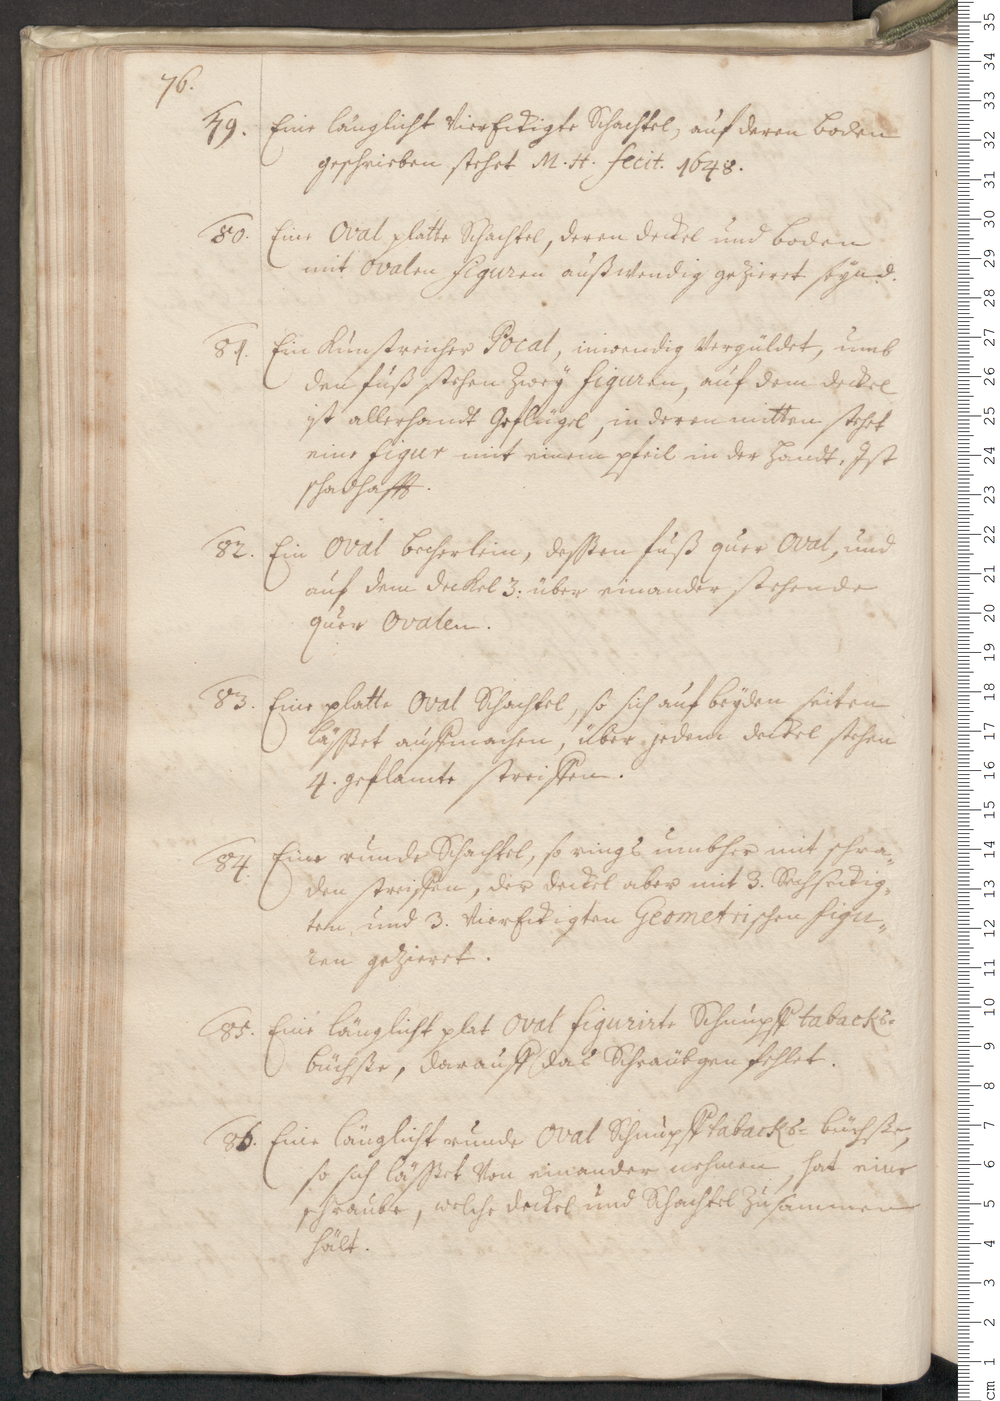 76.
79. Eine länglicht Vierekigte Schachtel, auf deren boden
geschrieben stehet M. H. fecit. 1648.
80. Eine Oval platte Schachtel, deren deckel und boden
mit Ovalen figuren außwendig gezieret seynd.
81. Ein Kunstreicher Pocal, inwendig Vergüldet, umb
den fuß stehen zwey figuren, auf dem deckel
ist allerhandt Geflügel, in deren mitten stehet
eine figur mit einem pfeil in der Handt, Ist
schadhafft.
82. Ein Oval becherlein, deßen fuß quer Oval, und
auf dem deckel 3. über einander stehende
quer Ovalen.
83. Eine platte Oval Schachtel, so sich auf beyden seiten
läßet aufmachen, über jedem deckel stehen
4. geflamte streiffen.
84. Eine runde Schachtel, so rings umbher mit schra„
den streiffen, der deckel aber mit 3. Sechseckig„
ten und 3. Vierekigten Geometrischen figu„
ren gezieret.
85. Eine länglicht plat Oval figurirte Schnupfftabacks-
büchße, darauff das Schräubgen fehlet.
86. Eine länglicht runde Oval Schnupfftabacks- büchße,
so sich läßet Von einander nehmen, hat eine
schraube, welche deckel und Schachtel zusammen
hält.
35
34
33
32
31
30
29
28
27
26
25
24
23
22
21
20
19
18
17
16
15
14
13
12
11
10
9
8
7
6
5
4
3
2
1
cm